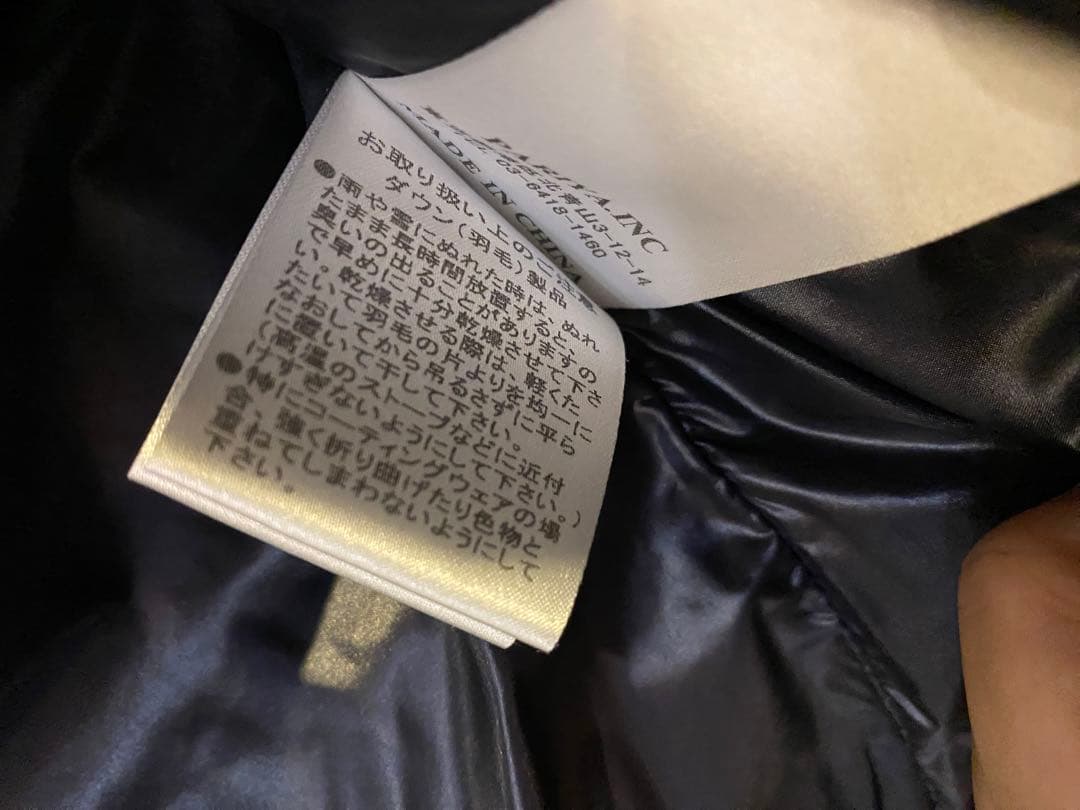 PARIYA.INC
北青山3-12-14
03-6418-1460
MADE IN CHINA
お取り扱い上のご注意
ダウン(羽毛)製品
●雨や雪にぬれた時は、ぬれ
たまま長時間放置すると、
臭いの出ることがありますの
で早めに十分乾燥させて下さ
い。乾燥させる際は、軽くた
たいて羽毛の片よりを均一に
なおしてから吊るさずに平ら
に置いて干して下さい。
(高温のストーブなどに近付
けすぎないようにして下さい。)
●特にコーティングウェアの場
合、強く折り曲げたり色物と
重ねてしまわないようにして
下さい。